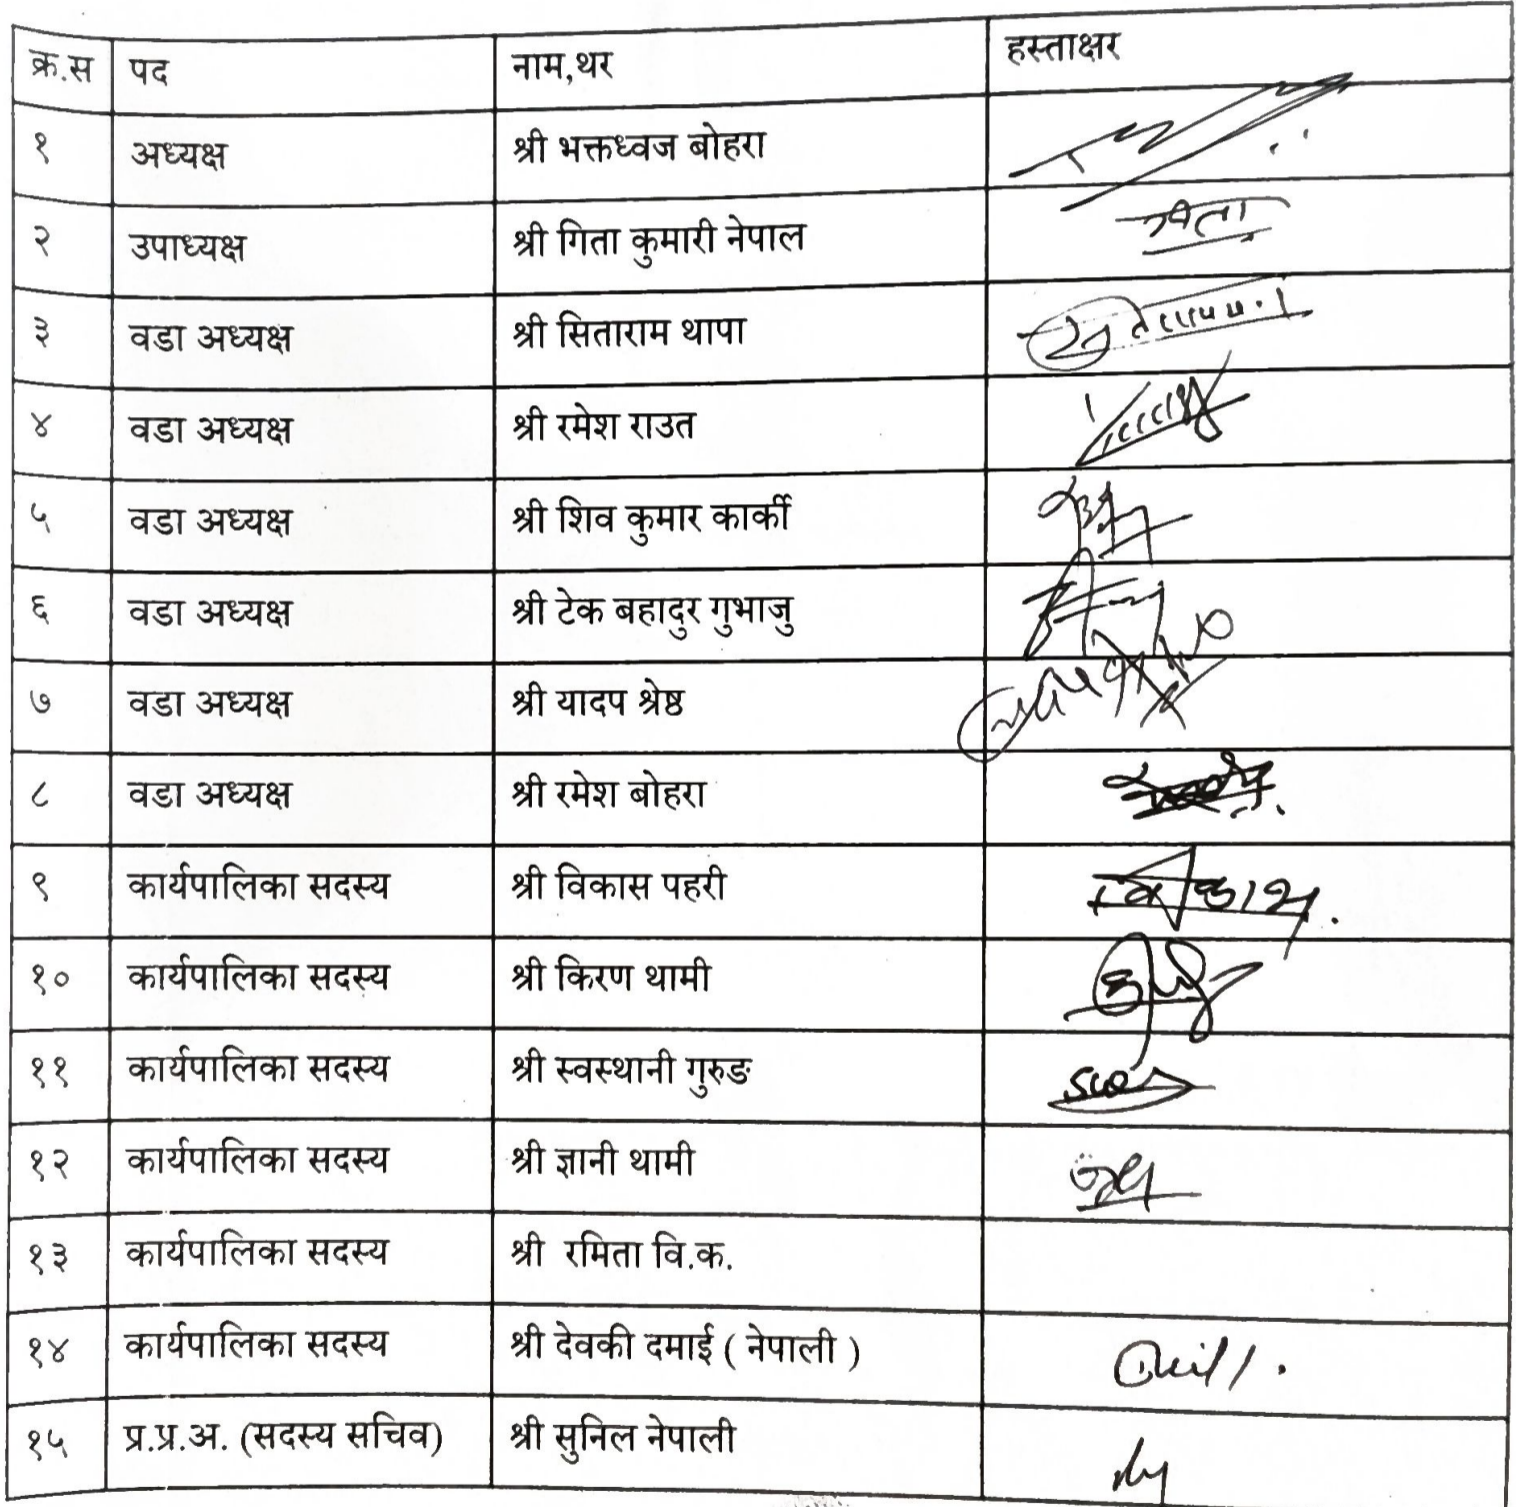 क्र.स पद नाम,थर हस्ताक्षर
१ अध्यक्ष श्री भक्तध्वज बोहरा
२ उपाध्यक्ष श्री गिता कुमारी नेपाल
३ वडा अध्यक्ष श्री सिताराम थापा
४ वडा अध्यक्ष श्री रमेश राउत
५ वडा अध्यक्ष श्री शिव कुमार कार्की
६ वडा अध्यक्ष श्री टेक बहादुर गुभाजु
७ वडा अध्यक्ष श्री यादप श्रेष्ठ
८ वडा अध्यक्ष श्री रमेश बोहरा
९ कार्यपालिका सदस्य श्री विकास पहरी
१० कार्यपालिका सदस्य श्री किरण थामी
११ कार्यपालिका सदस्य श्री स्वस्थानी गुरुङ
१२ कार्यपालिका सदस्य श्री ज्ञानी थामी
१३ कार्यपालिका सदस्य श्री रमिता वि.क.
१४ कार्यपालिका सदस्य श्री देवकी दमाई ( नेपाली )
१५ प्र.प्र.अ. (सदस्य सचिव) श्री सुनिल नेपाली